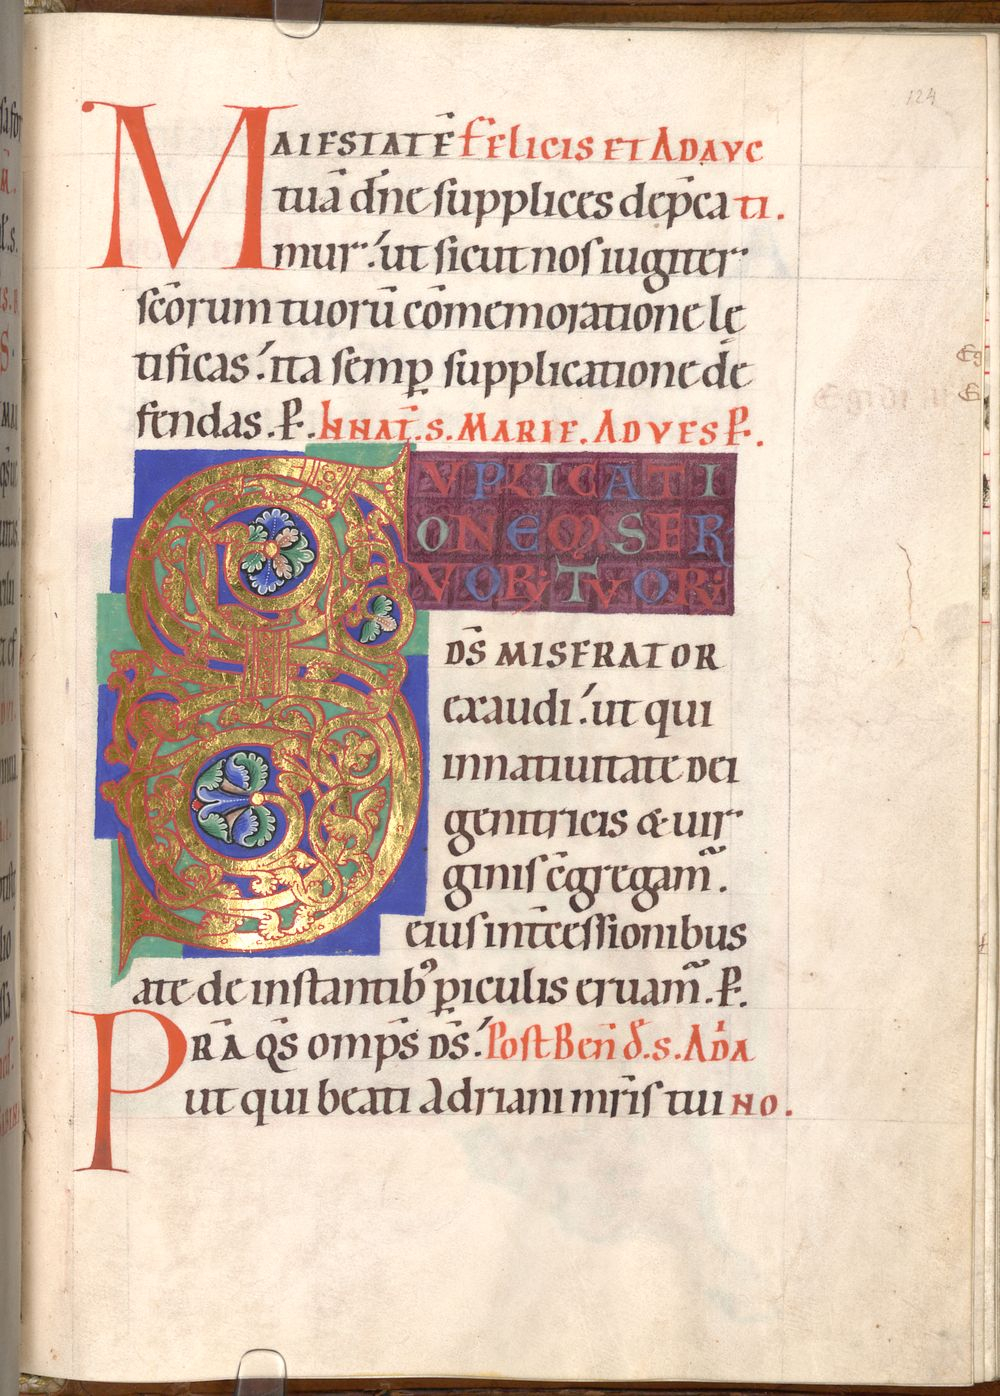 124
MAIESTATĒ FELICIS ET ADAVC
tuā dñe supplices dep̄ca TI.
mur. ut sicut nos iugiter
sc̄orum tuorū cōmemoratione lę
tificas. ita semꝑ supplicatione de
fendas. P. IN NAT̄. S. MARIE. AD VESP.
SVPLICATI
ONEM SER
VORꝫ TVORꝫ
DS̄ MISERATOR
exaudi. ut qui
in natiuitate dei
genitricis & uir
ginis c̄gregam̃.
eius int̄cessionibus
a te de instantibꝰ ꝑiculis eruam̃. P.
PRĀ QS̄ omp̄s DS̄. Post Ben̄ d̄. S. ADRIA
ut qui beati Adriani mr̄is tui NO.